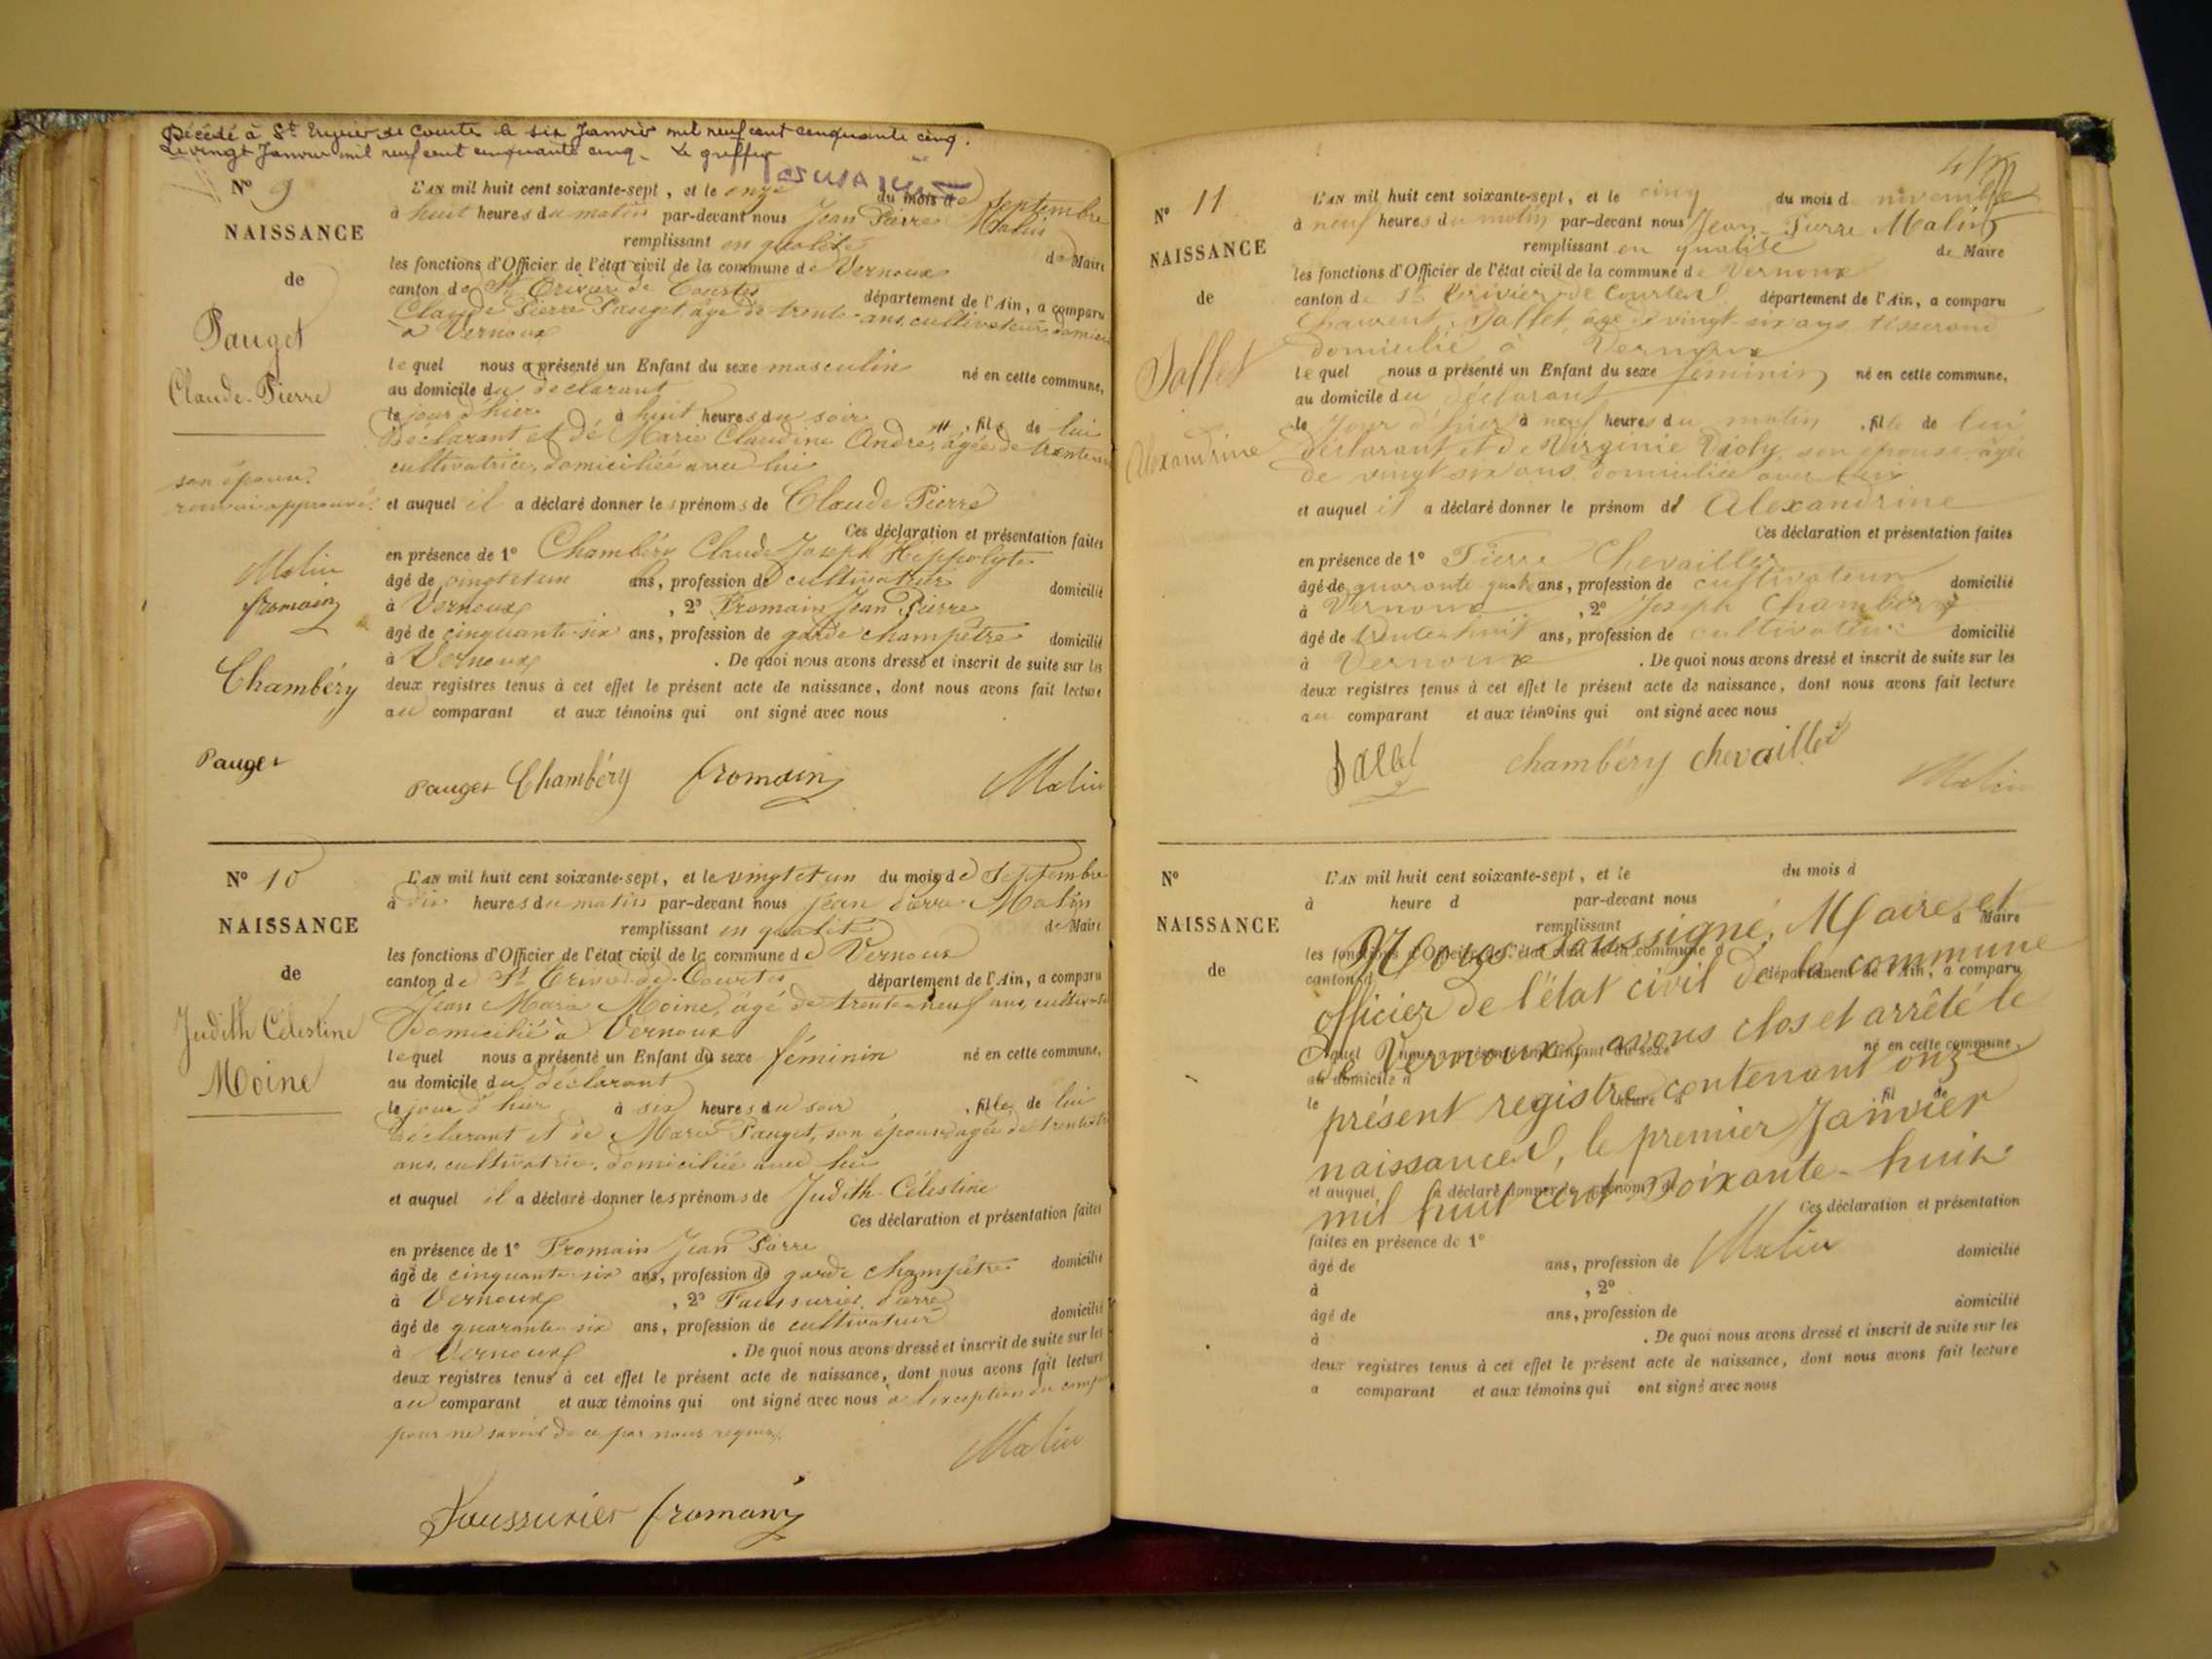 Décédé à St Trivier de Courtes le six Janvier mil neuf cent cinquante cinq.
Le vingt Janvier mil neuf cent cinquante cinq. Le greffier
N° 9
NAISSANCE
de
Pauget
Claude-Pierre
son épouse
renvoi approuvé
Malin
fromain
Chambéry
Pauget
L'AN mil huit cent soixante-sept, et le onze du mois de Septembre
à huit heures du matin par-devant nous Jean Pierre Malin
remplissant en qualité de Maire
les fonctions d'Officier de l'état civil de la commune de Vernoux
canton de St Trivier de Courtes département de l'Ain, a comparu
Claude Pierre Pauget âgé de trente ans, cultivateur domicilié
à Vernoux
lequel nous a présenté un Enfant du sexe masculin né en cette commune,
au domicile du déclarant
le jour d'hier à huit heures du soir, fils de lui
déclarant et de Marie Claudine André, âgée de trente ans
cultivatrice, domiciliée avec lui
et auquel il a déclaré donner les prénoms de Claude Pierre
Ces déclaration et présentation faites
en présence de 1° Chambéry Claude Joseph Hippolyte
âgé de vingt et un ans, profession de cultivateur domicilié
à Vernoux, 2° Fromain Jean Pierre
âgé de cinquante-six ans, profession de garde champêtre domicilié
à Vernoux. De quoi nous avons dressé et inscrit de suite sur les
deux registres tenus à cet effet le présent acte de naissance, dont nous avons fait lecture
au comparant et aux témoins qui ont signé avec nous
Pauget Chambéry fromain Malin
N° 10
NAISSANCE
de
Judith Célestine
Moine
L'AN mil huit cent soixante-sept, et le vingt et un du mois de Septembre
à dix heures du matin par-devant nous Jean Pierre Malin
remplissant en qualité de Maire
les fonctions d'Officier de l'état civil de la commune de Vernoux
canton de St Trivier de Courtes département de l'Ain, a comparu
Jean Marie Moine, âgé de trente-neuf ans, cultivateur
domicilié à Vernoux
lequel nous a présenté un Enfant du sexe féminin né en cette commune,
au domicile du déclarant
le jour d'hier à six heures du soir, fille de lui
déclarant et de Marie Pauget, son épouse âgée de
ans, cultivatrice, domiciliée avec lui
et auquel il a déclaré donner les prénoms de Judith-Célestine
Ces déclaration et présentation faites
en présence de 1° Fromain Jean Pierre
âgé de cinquante-six ans, profession de garde champêtre domicilié
à Vernoux, 2° Faussurier Pierre
âgé de quarante-six ans, profession de cultivateur domicilié
à Vernoux. De quoi nous avons dressé et inscrit de suite sur les
deux registres tenus à cet effet le présent acte de naissance, dont nous avons fait lecture
au comparant et aux témoins qui ont signé avec nous à l'exception du comparant
pour ne savoir de ce par nous requis.
Malin
Faussurier fromain
N° 11
NAISSANCE
de
Jallet
Alexandrine
L'AN mil huit cent soixante-sept, et le cinq du mois de novembre
à neuf heures du matin par-devant nous Jean-Pierre Malin
remplissant en qualité de Maire
les fonctions d'Officier de l'état civil de la commune de Vernoux
canton de St Trivier de Courtes département de l'Ain, a comparu
Laurent Jallet, âgé de vingt-six ans tisserand
domicilié à Vernoux
lequel nous a présenté un Enfant du sexe féminin né en cette commune,
au domicile du déclarant
le jour d'hier à neuf heures du matin, fille de lui
déclarant et de Virginie Violy, son épouse, âgée
de vingt six ans domiciliée avec lui
et auquel il a déclaré donner le prénom de Alexandrine
Ces déclaration et présentation faites
en présence de 1° Pierre Chevaillier
âgé de quarante-quatre ans, profession de cultivateur domicilié
à Vernoux, 2° Joseph Chambéry
âgé de trente-huit ans, profession de cultivateur domicilié
à Vernoux. De quoi nous avons dressé et inscrit de suite sur les
deux registres tenus à cet effet le présent acte de naissance, dont nous avons fait lecture
au comparant et aux témoins qui ont signé avec nous
Jallet chambéry chevaillier
Malin
N°
NAISSANCE
de
L'AN mil huit cent soixante-sept, et le du mois d
à heure d par-devant nous
remplissant d Maire
Nous soussigné, Maire et
officier de l'état civil de la commune
de Vernoux, avons clos et arrêté le
présent registre contenant onze
naissances, le premier Janvier
mil huit cent soixante-huit
Malin
Ces déclaration et présentation
faites en présence de 1°
âgé de ans, profession de domicilié
à , 2°
âgé de ans, profession de domicilié
à . De quoi nous avons dressé et inscrit de suite sur les
deux registres tenus à cet effet le présent acte de naissance, dont nous avons fait lecture
a comparant et aux témoins qui ont signé avec nous